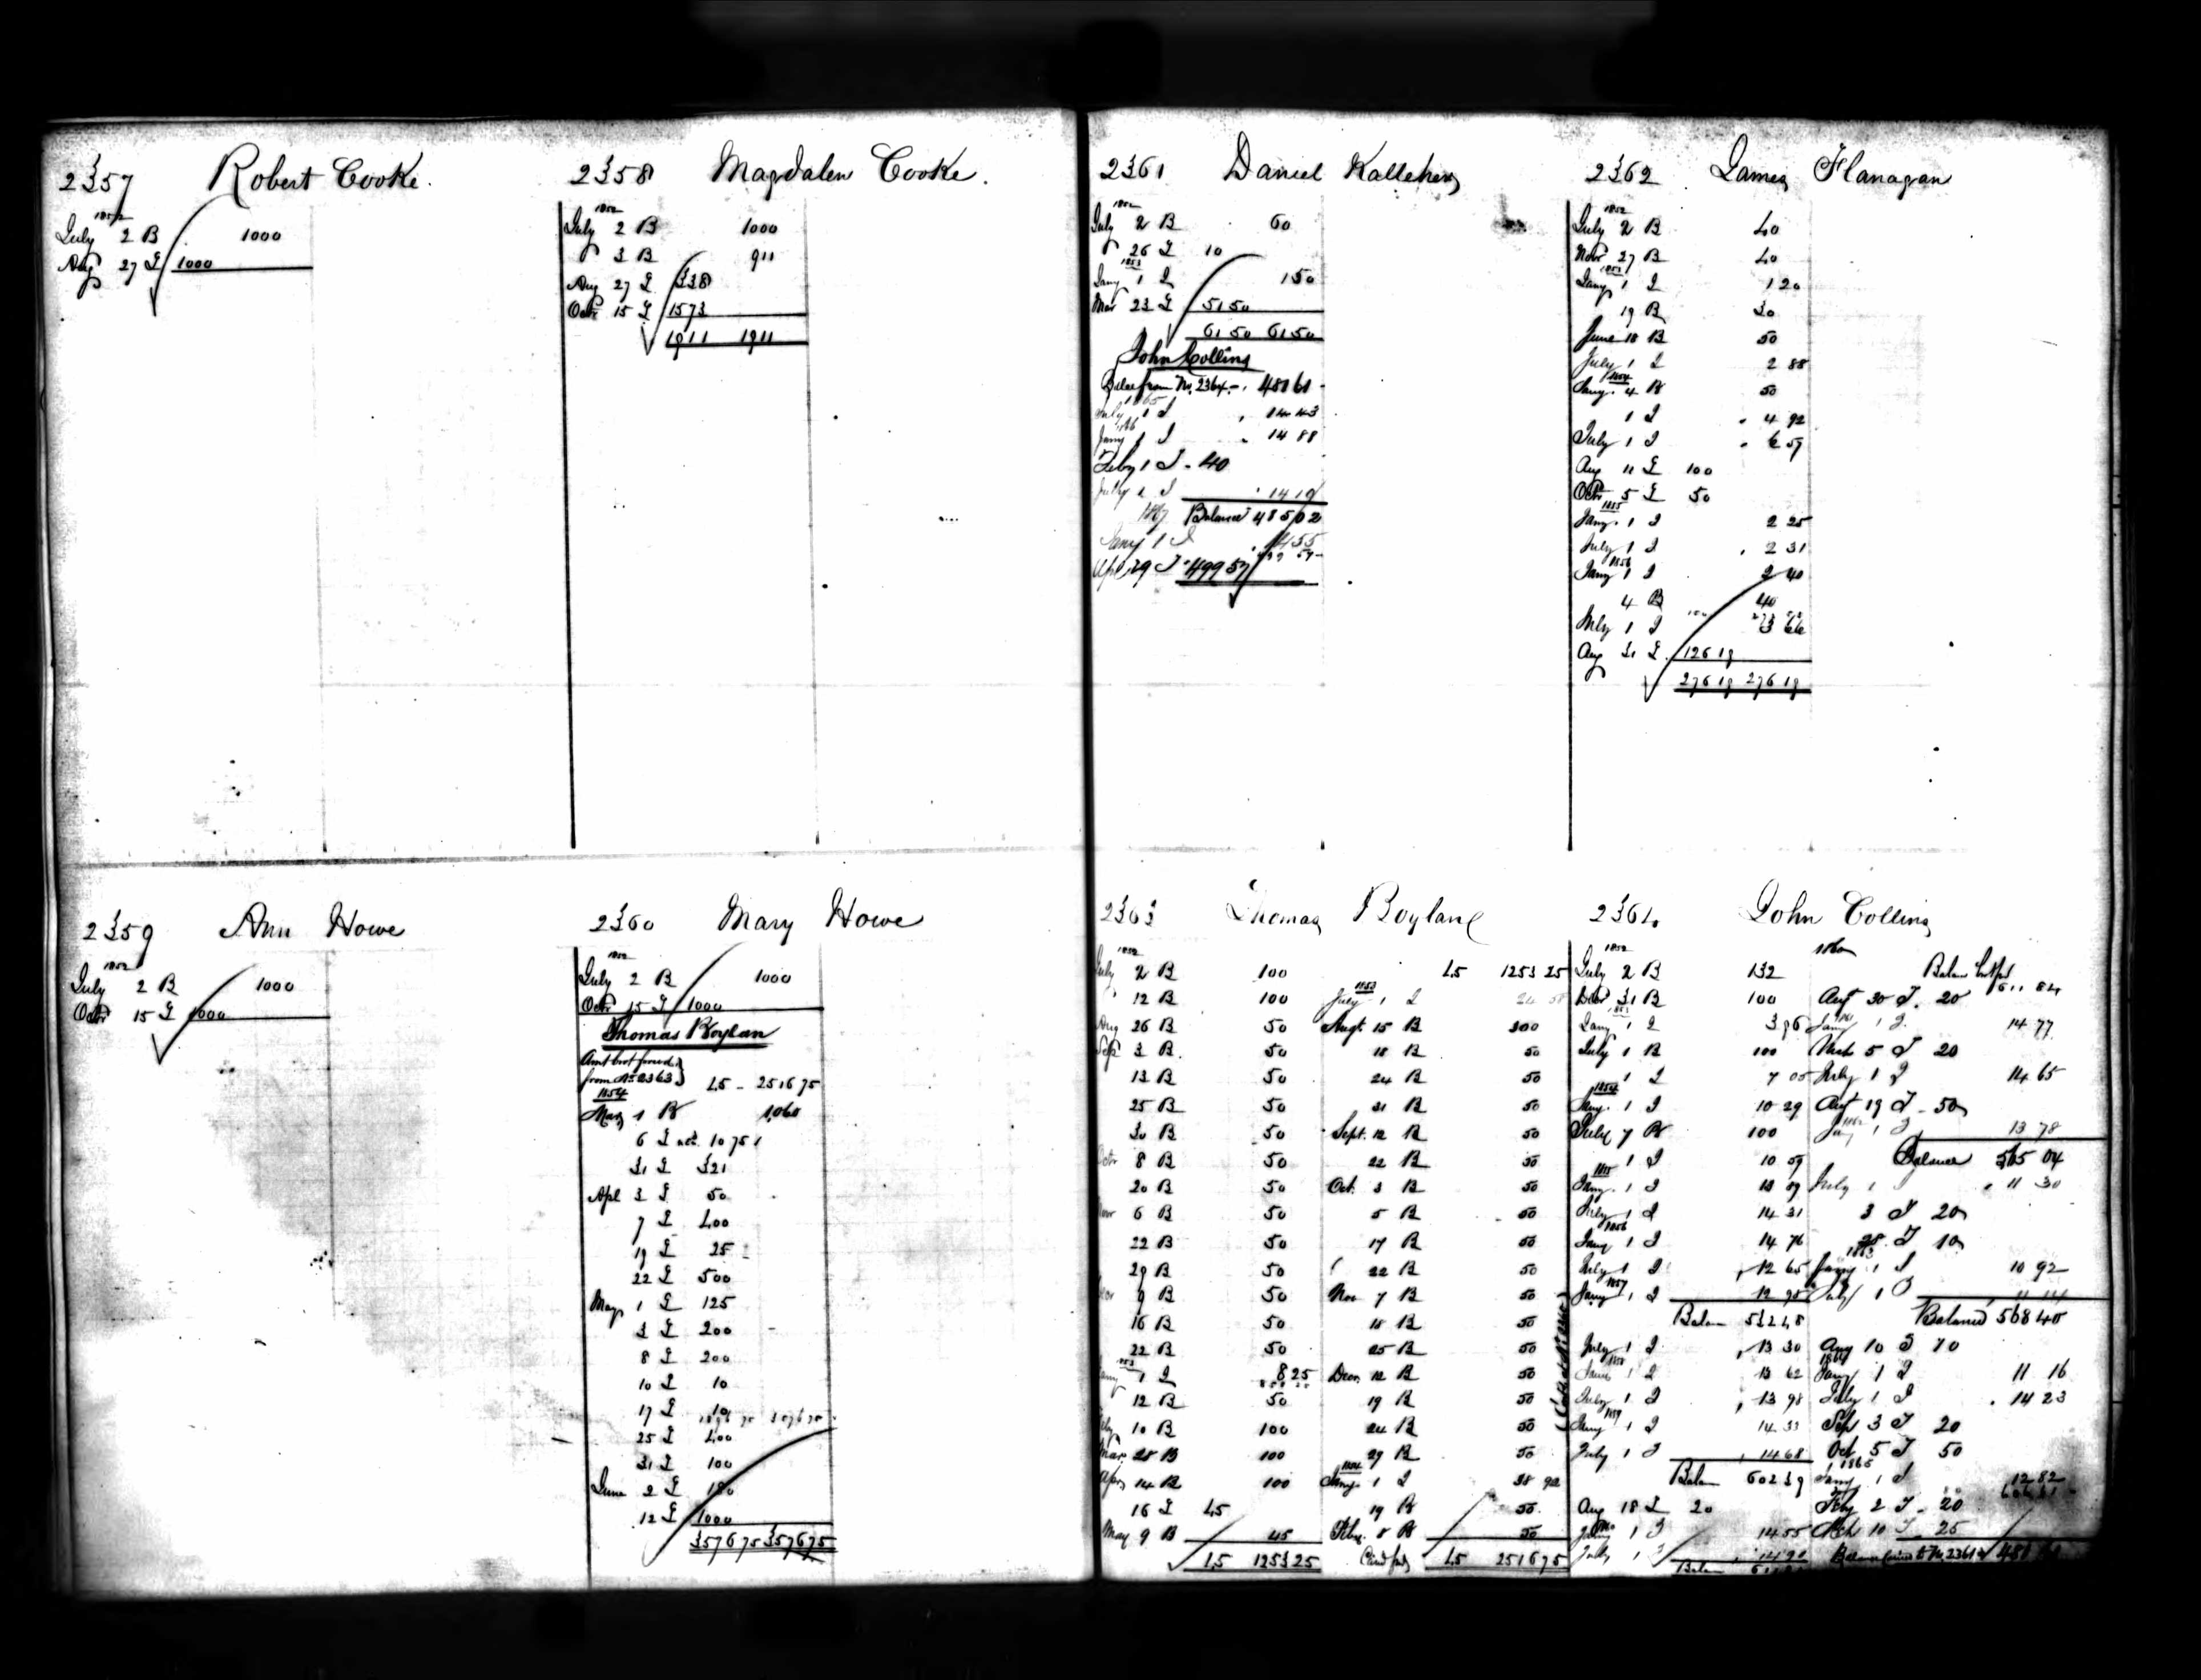 2357 Robert Cooke.
1852
July 2 B 1000
Aug 27 I 1000
2358 Magdalen Cooke.
1852
July 2 B 1000
3 B 911
Aug 27 I 338
Octr 15 I 1573
1911 1911
2359 Ann Howe
1852
July 2 B 1000
Octr 15 I 1000
2360 Mary Howe
1852
July 2 B 1000
Octr 15 I 1000
Thomas Boylan
Amt brot forwd
from No 2363 45 - 2516 75
1854
Mar 1 B 1060
6 I 1075
31 I 321
Apl 3 I 50
7 I 400
19 I 25
22 I 500
May 1 I 125
3 I 200
8 I 200
10 I 10
17 I 10
25 I 400
31 I 100
June 2 I
12 I 1000
3576 75 3576 75
2361 Daniel Kallehery
1852
July 2 B 60
26 I 10
1853
Jany 1 I 1 50
Mar 23 I 51 50
61 50 61 50
John Collins
Balce from No. 2364 - 481 61
1865
July 1 I 14 43
Jany 1 I 14 88
Feby 1 I - 40
July 1 I 14 19
Balance 485 02
Jany 1 I 14 55
Apl 29 I 499 57
2362 James Flanagan
1852
July 2 B 40
Novr 27 B 40
1853
Jany 1 I 1 20
19 B 30
June 18 B 50
July 1 I 2 88
1854
Jany. 4 B 50
1 I 4 92
July 1 I 6 59
Aug 11 I 100
Octr 5 I 50
1855
Jany. 1 I 2 25
July 1 I 2 31
1856
Jany 1 I 2 40
4 B 40
July 1 I 3 66
Aug 31 I 126 19
276 19 276 19
2363 Thomas Boyland
1852
July 2 B 100
12 B 100
Aug 26 B 50
Sep 3 B 50
13 B 50
25 B 50
30 B 50
Octr 8 B 50
20 B 50
Novr 6 B 50
22 B 50
29 B 50
9 B 50
16 B 50
22 B 50
1853
Jany 1 I 8 25
12 B 50
Feby 10 B 100
Mar. 28 B 100
Apr 14 B 100
16 I 45
May 9 B 45
45 1253 25
45 1253 25
1853
July 1 I
Augt. 15 B 300
18 B 50
24 B 50
31 B 50
Sept. 12 B 50
22 B 50
Oct. 3 B 50
5 B 50
17 B 50
22 B 50
Nov 7 B 50
18 B 50
25 B 50
Decr. 12 B 50
19 B 50
24 B 50
29 B 50
1854
Jany. 1 I 38 92
19 B 50
Feby. 8 B 50
Card ford 45 2516 75
2364 John Collins
1852
July 2 B 132
Decr 31 B 100
1853
Jany 1 I 3 96
July 1 B 100
1 I 7 05
1854
Jany. 1 I 10 29
July 7 B 100
1 I 10 59
1855
Jany. 1 I
July 1 I 14 31
1856
Jany 1 I 14 76
July 1 I 12 65
1857
Jany 1 I 12 95
Balan 532 48
July 1 I 13 30
1858
Jany 1 I 13 62
July 1 I 13 98
1859
Jany 1 I 14 33
July 1 I 14 68
Balan 602 39
Aug 18 I 20
1860
Jany 1 I 14 55
July 1 I 14 90
Balan
1860
Balan brt ford 611 84
Augt 30 I 20
1861
Jany 1 I 14 77
Mch 5 I 20
July 1 I 14 65
Augt 19 I 50
1862
Jany 1 I 13 78
Balance 565 04
July 1 I 11 30
3 I 20
28 I 10
1863
Jany 1 I 10 92
July 1 I
Balance 568 40
Aug 10 I 70
1864
Jany 1 I 11 16
July 1 I 14 23
Sept 3 I 20
Oct 5 I 50
1865
Jany 1 I 12 82
Feby 2 I - 20
Mch 10 I 25